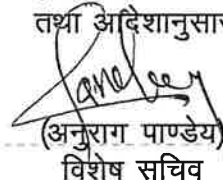 तथा आदेशानुसार
(अनुराग पाण्डेय)
विशेष सचिव